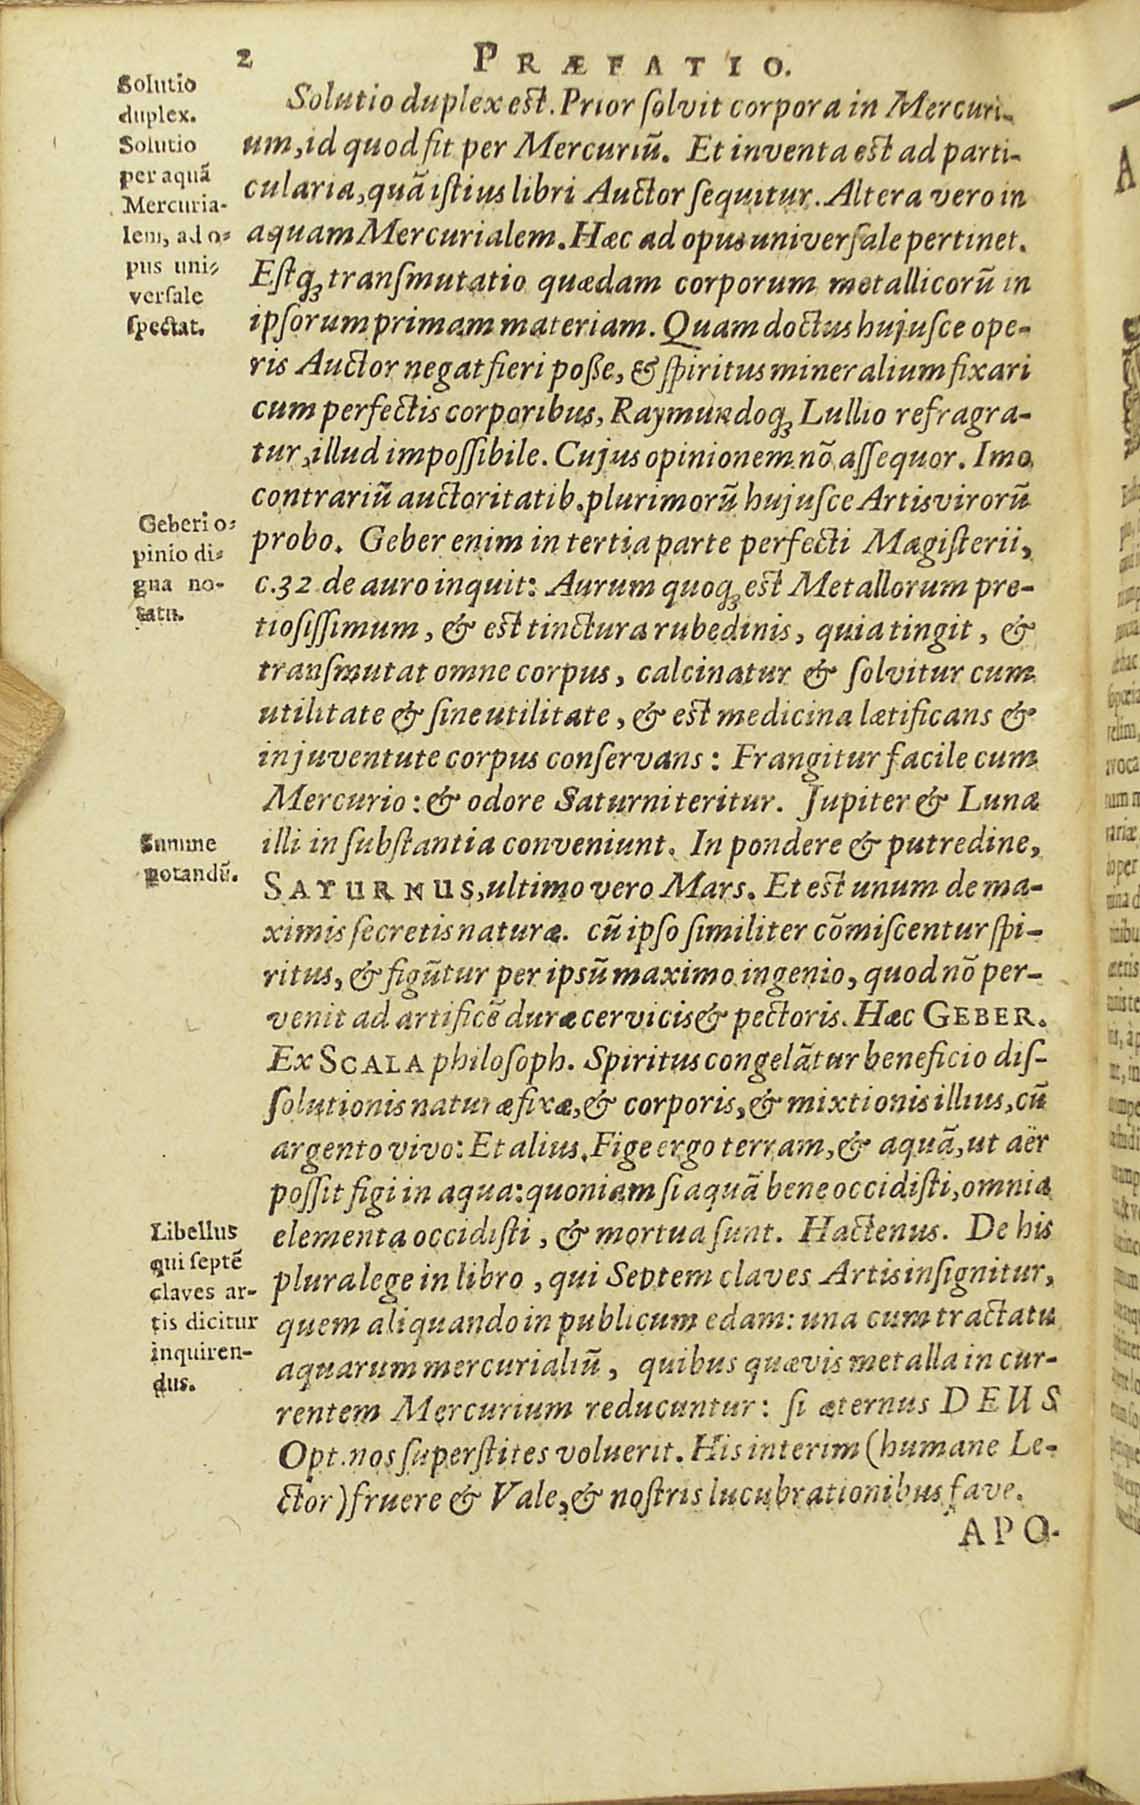 2
PRÆFATIO.
Solutio
duplex.
Solutio
per aquã
Mercuria-
lem, ad o-
pus uni-
versale
spectat.
Solutio duplex est. Prior ſolvit corpora in Mercuri-
um, id quod fit per Mercuriũ. Et inventa est ad parti-
cularia, quã iſtius libri Auctor ſequitur. Altera vero in
aquam Mercurialem. Hæc ad opus univerſale pertinet.
Eſtqꝫ tranſmutatio quædam corporum metallicorũ in
ipſorum primam materiam. Quam doctus hujuſce ope-
ris Auctor negat fieri poße, & ſpiritus mineralium fixari
cum perfectis corporibus, Raymundoqꝫ Lullio refragra-
tur, illud impoſſibile. Cujus opinionem nõ aſſequor. Imo
contrariũ auctoritatib. plurimorũ hujuſce Artis virorũ
Geberi o-
pinio di-
gna no-
tatu.
probo. Geber enim in tertia parte perfecti Magiſterii,
c.32 de auro inquit: Aurum quoqꝫ est Metallorum pre-
tioſiſſimum, & est tinctura rubedinis, quia tingit, &
tranſmutat omne corpus, calcinatur & ſolvitur cum
utilitate & ſine utilitate, & est medicina lætificans &
in juventute corpus conſervans: Frangitur facile cum
Mercurio: & odore Saturni teritur. Jupiter & Luna
Summe
notandũ.
illi in ſubſtantia conveniunt. In pondere & putredine,
SATURNUS, ultimo vero Mars. Et est unum de ma-
ximis ſecretis naturæ. cũ ipſo ſimiliter cõmiſcentur ſpi-
ritus, & figũtur per ipſũ maximo ingenio, quod nõ per-
venit ad artificẽ duræ cervicis & pectoris. Hæc GEBER.
Ex SCALA philoſoph. Spiritus congelãtur beneficio diſ-
ſolutionis naturæ fixæ, & corporis, & mixtionis illius, cũ
argento vivo: Et alius. Fige ergo terram, & aquã, ut aër
poſſit figi in aqua: quoniam ſi aquã bene occidiſti, omnia
Libellus
qui ſeptẽ
claves ar-
tis dicitur
inquiren-
dus.
elementa occidiſti, & mortua ſunt. Hactenus. De his
plura lege in libro, qui Septem claves Artis inſignitur,
quem aliquando in publicum edam: una cum tractatu
aquarum mercurialiũ, quibus quævis metalla in cur-
rentem Mercurium reducuntur: ſi æternus DEUS
Opt. nos ſuperſtites voluerit. His interim (humane Le-
ctor) fruere & Vale, & noſtris lucubrationibus fave.
APO-